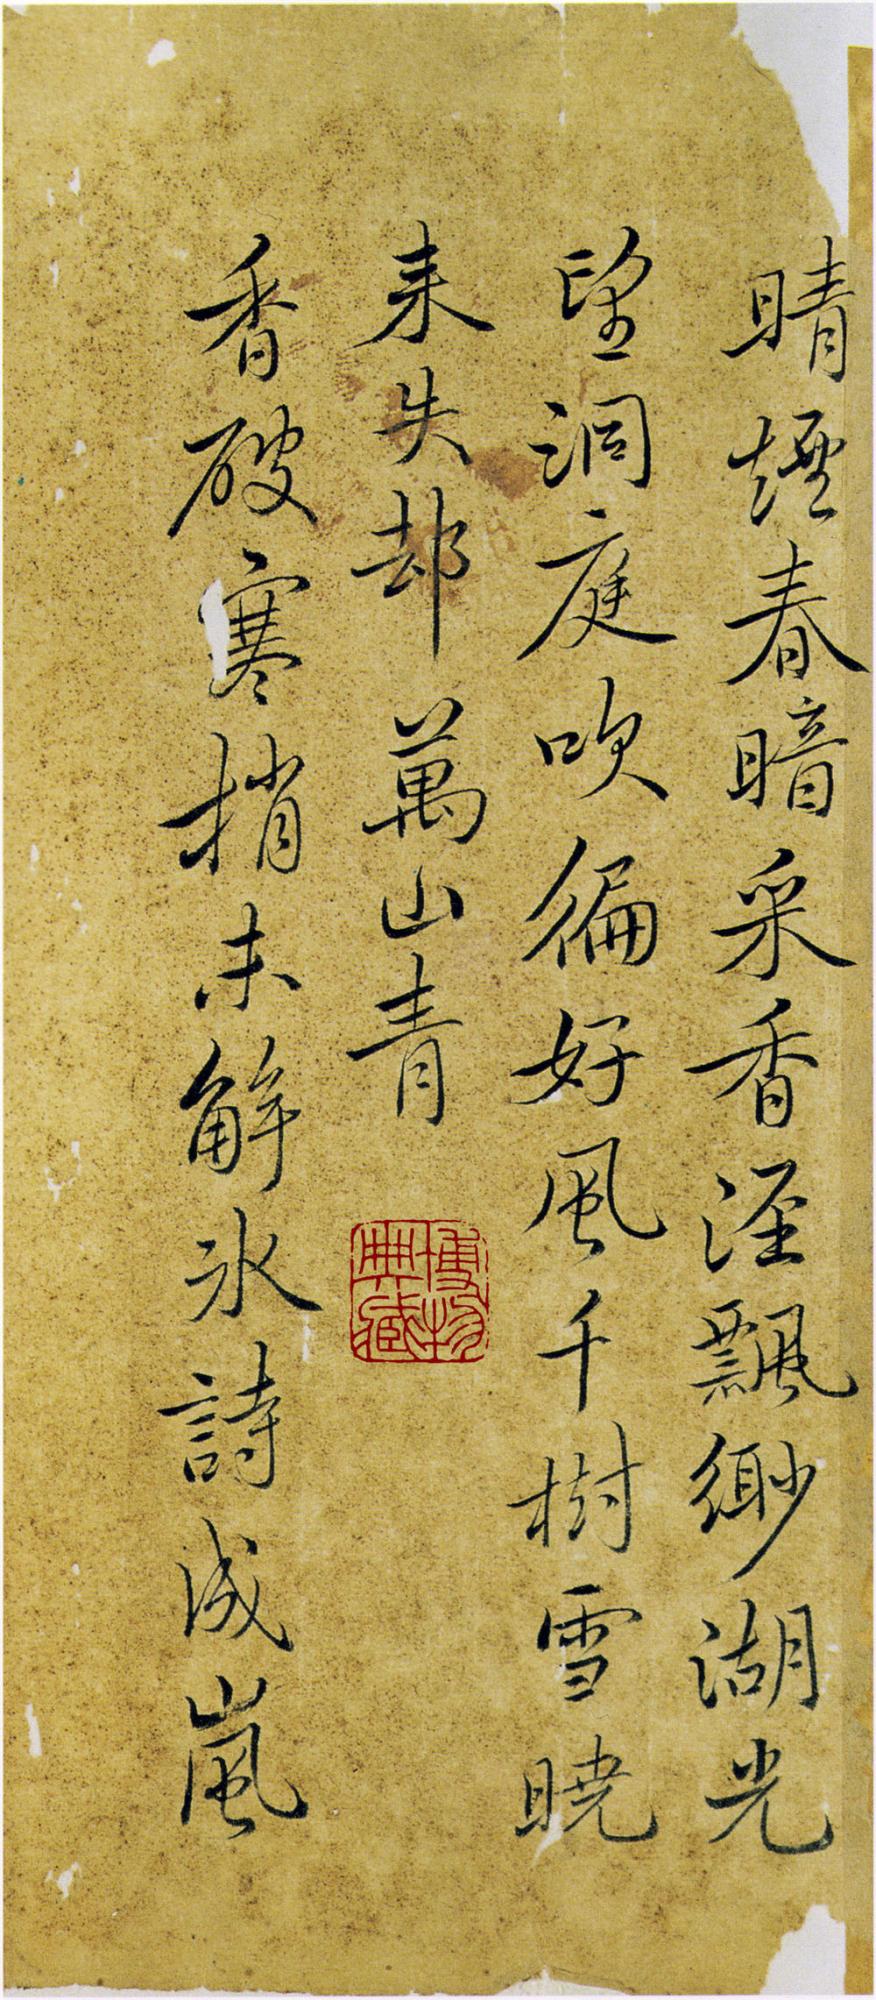 晴煙春暗采香涇飄緲湖光
望洞庭吹徧好風千樹雪曉
來失却萬山青
博物
典藏
香破寒梢未解氷詩成嵐